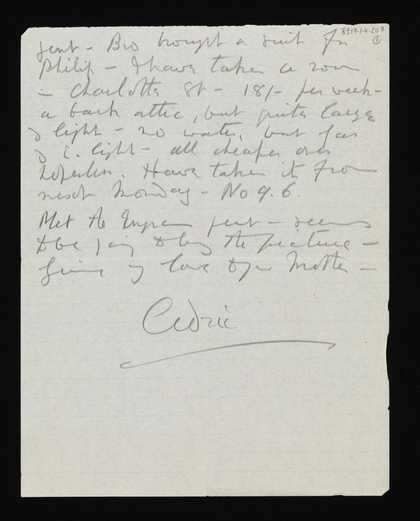 sent – Bio bought a suit for
Philip – I have taken a room
in Charlotte St – 18/- per week –
a back attic, but quite large
& light – no water, but gas
& e. light – all cheaper ones
hopeless. Have taken it from
next Monday – No 9. 6.
Met the Ingram – seems
to be going to buy the picture –
Give my love to yr Mother –
Cedric